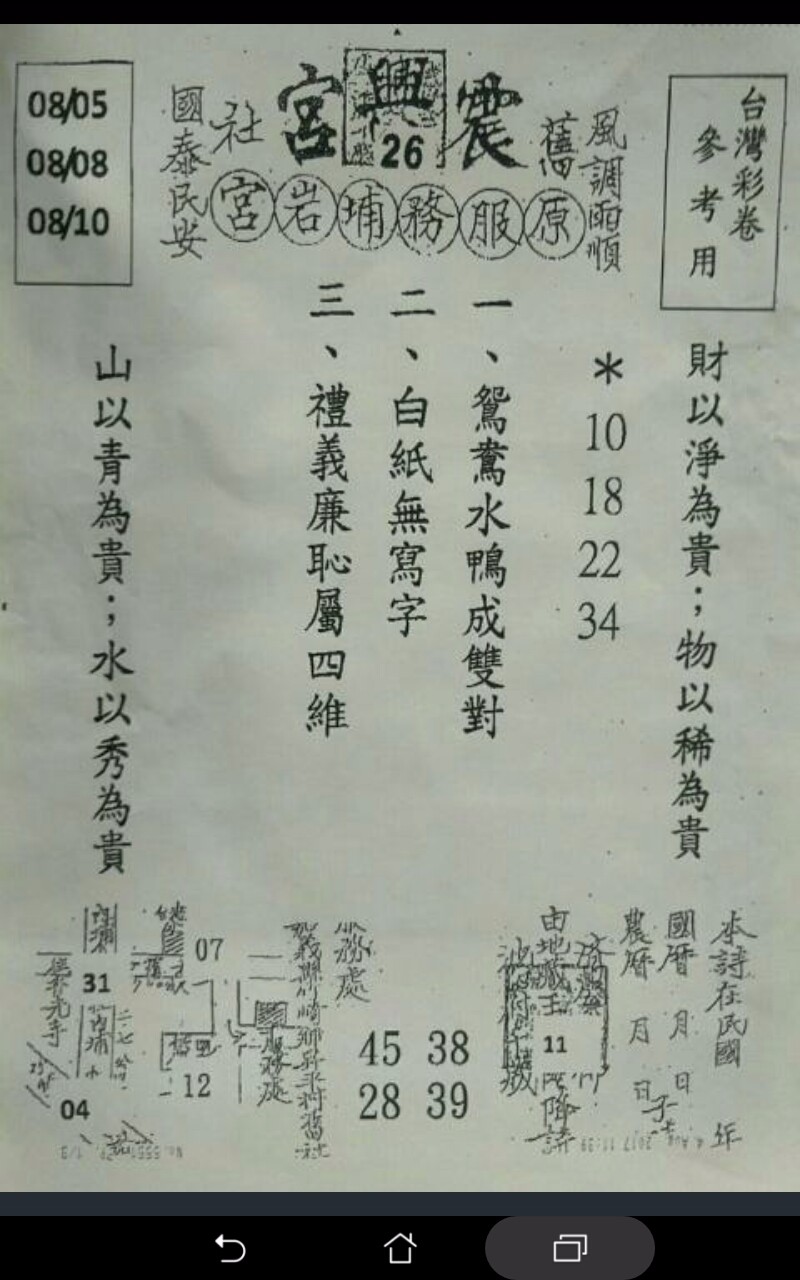 台灣彩卷
參考用
風調雨順
舊
震興宮
26
社
國泰民安
原服務埔岩宮
08/05
08/08
08/10
財以淨為貴；物以稀為貴
＊
10
18
22
34
一、鴛鴦水鴨成雙對
二、白紙無寫字
三、禮義廉恥屬四維
山以青為貴；水以秀為貴
本詩在民國 年
國曆 月 日
農曆 月 日
由地藏王
11
降詩
服務處
45 38
28 39
07
12
31
04